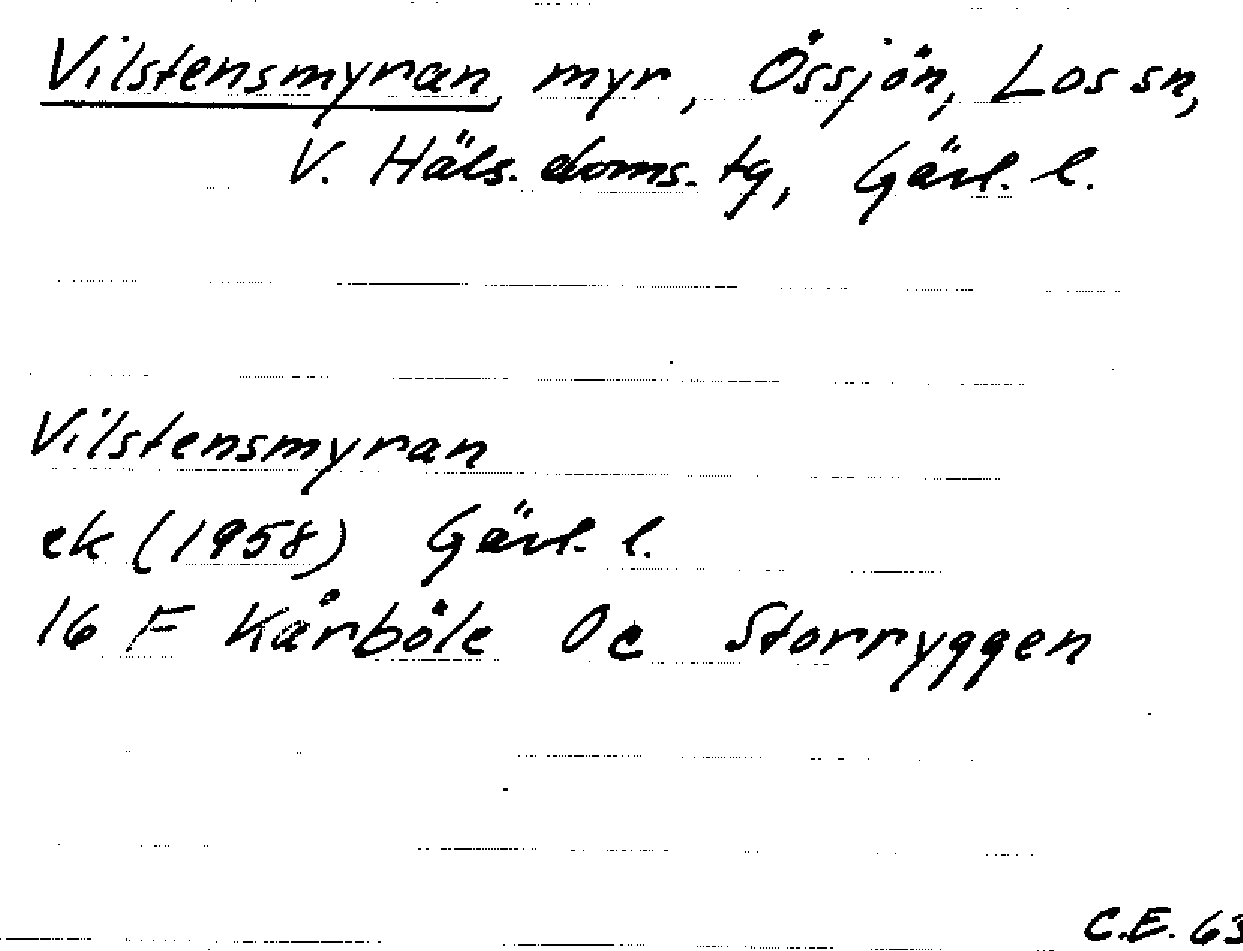 Vilstensmyran, myr, Össjön, Los sn,
V. Häls. doms. tg, Gävl. l.
Vilstensmyran
ek (1958) Gävl. l.
16 F Kårböle 0 c Storryggen
C.E. 63